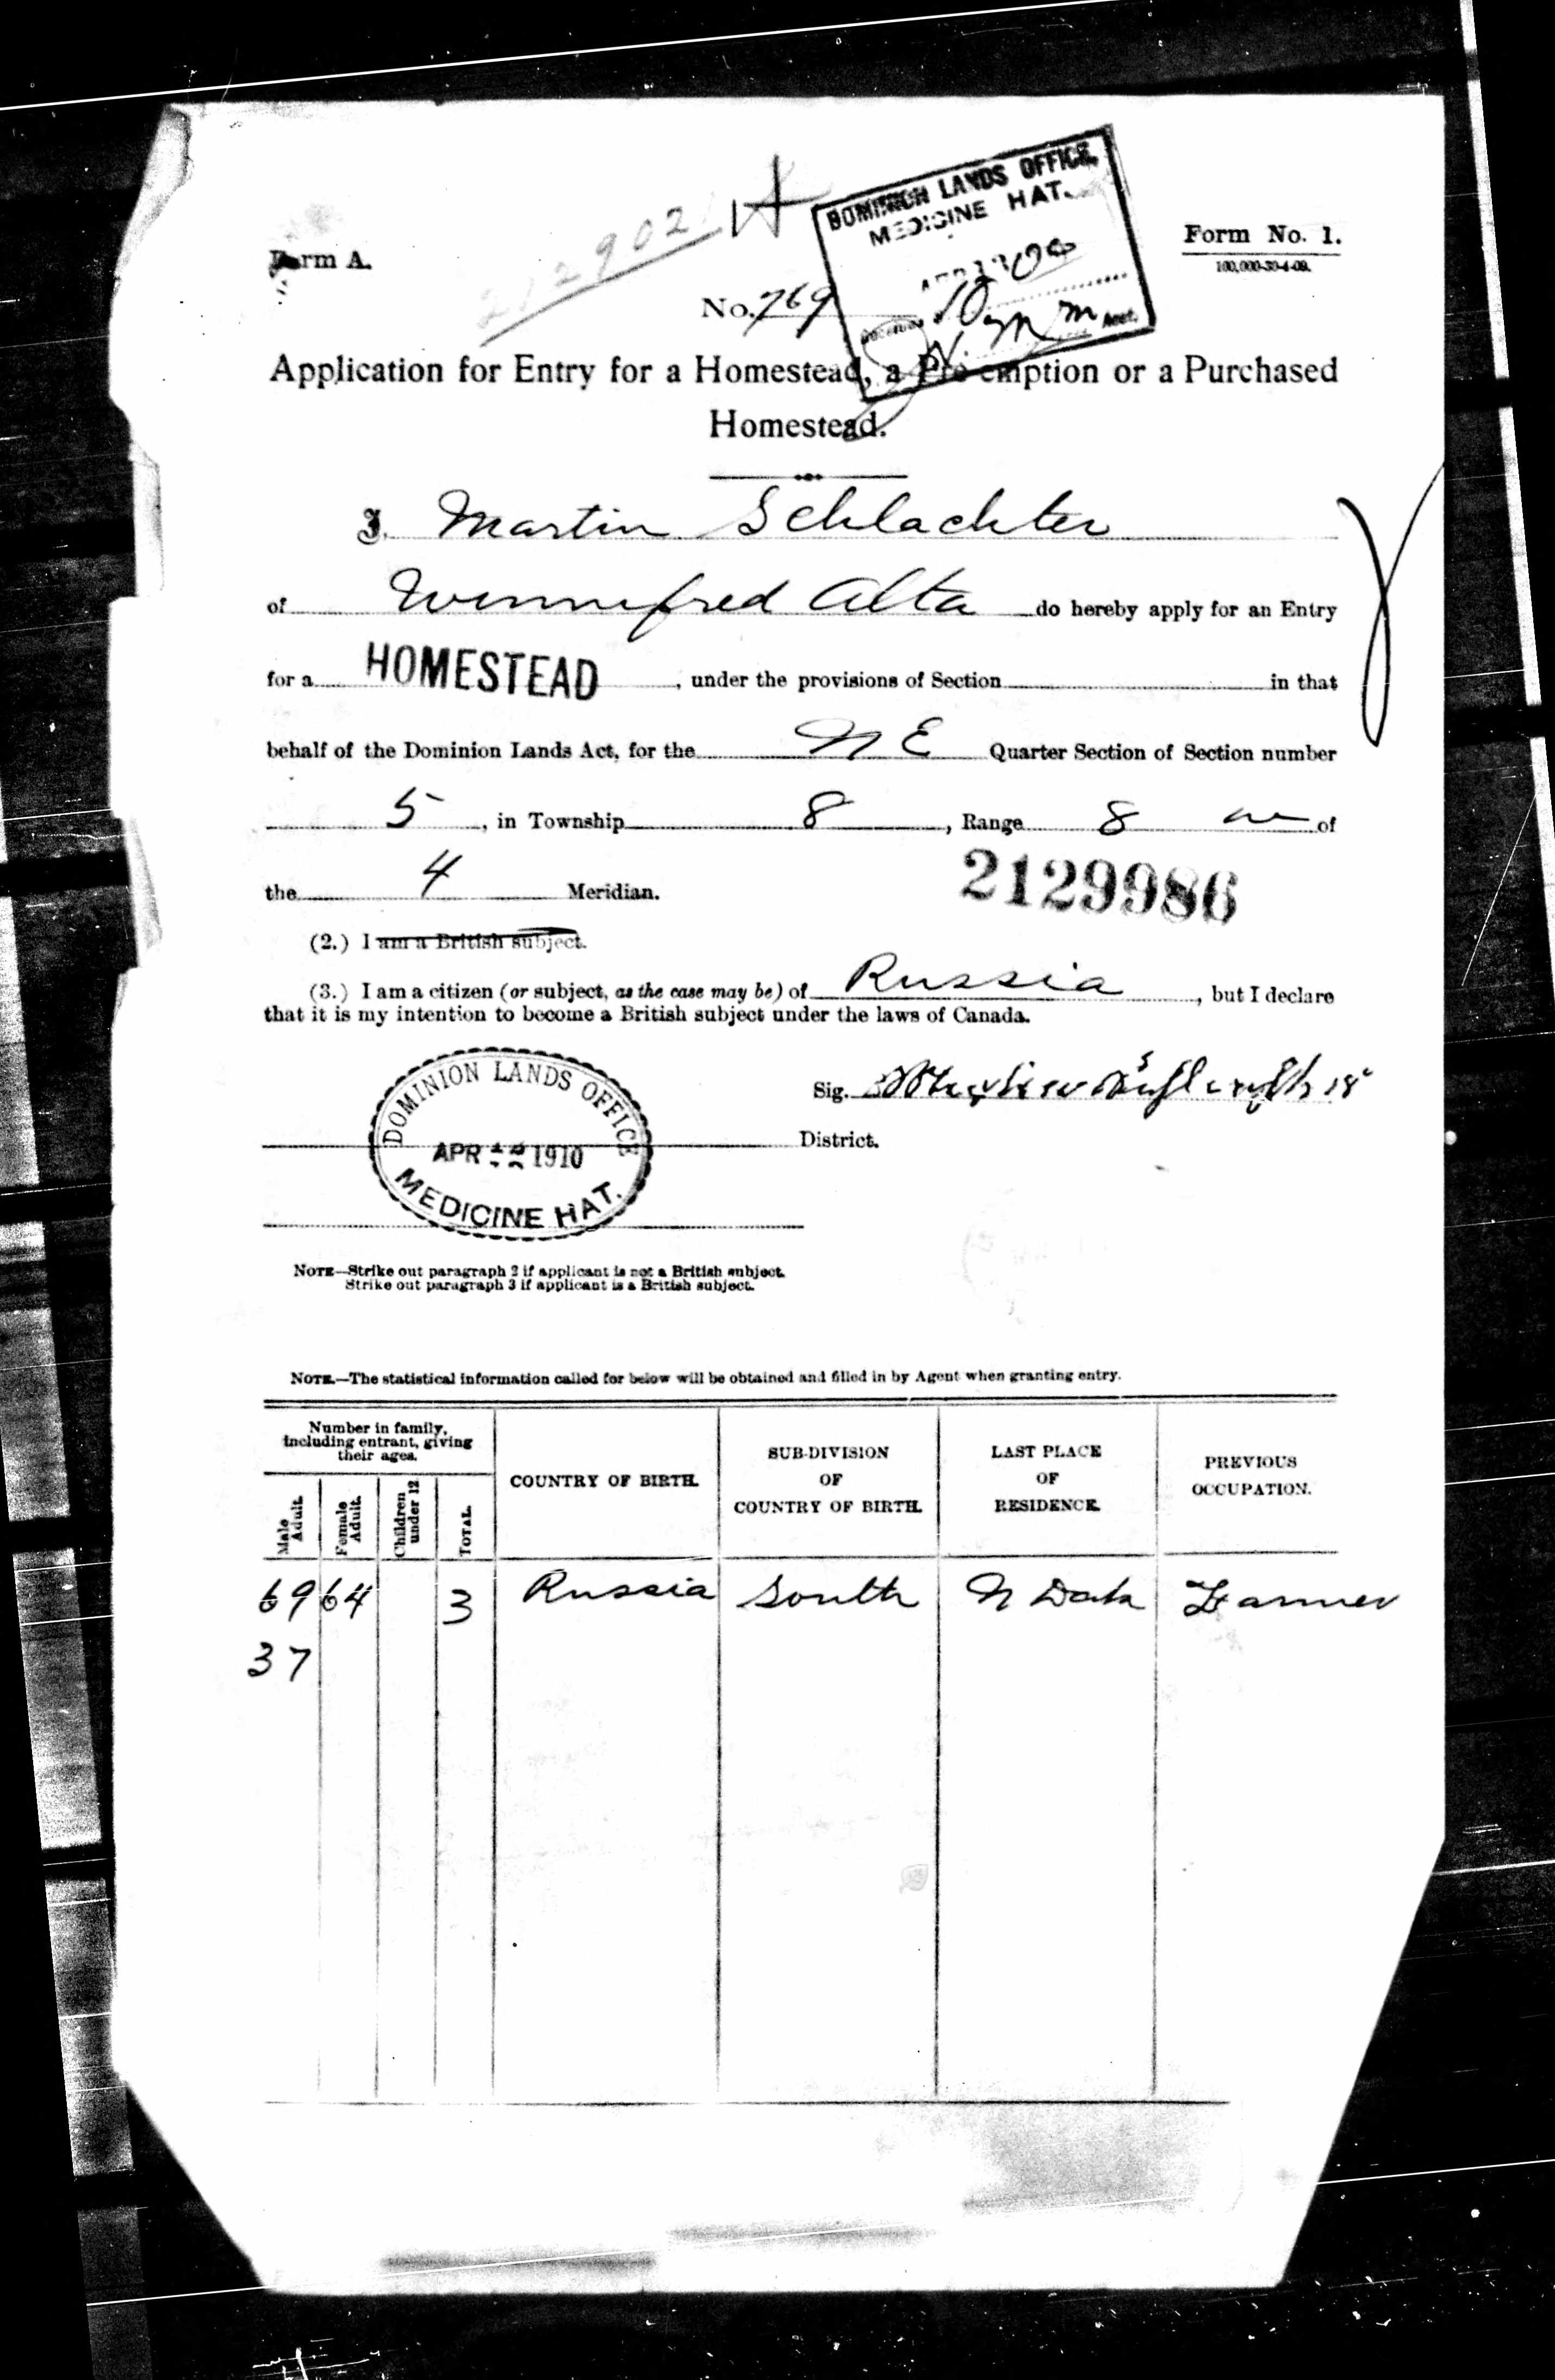 DOMINION LANDS OFFICE,
MEDICINE HAT.
212902
Form A.
Form No. 1.
100,000-30-4-09.
No. 769
Application for Entry for a Homestead, a Pre-emption or a Purchased
Homestead.
I, Martin Schlachter
of Winnifred Alta do hereby apply for an Entry
for a HOMESTEAD, under the provisions of Section in that
behalf of the Dominion Lands Act, for the N E Quarter Section of Section number
5, in Township 8, Range 8 w of
the 4 Meridian.
2129986
(2.) I am a British subject.
(3.) I am a citizen (or subject, as the case may be) of Russia, but I declare
that it is my intention to become a British subject under the laws of Canada.
Sig.
District.
DOMINION LANDS OFFICE
APR 1910
MEDICINE HAT.
NOTE—Strike out paragraph 2 if applicant is not a British subject.
Strike out paragraph 3 if applicant is a British subject.
NOTE.—The statistical information called for below will be obtained and filled in by Agent when granting entry.
Number in family, including entrant, giving their ages.
Male Adult.
Female Adult.
Children under 12
TOTAL.
COUNTRY OF BIRTH.
SUB-DIVISION OF COUNTRY OF BIRTH.
LAST PLACE OF RESIDENCE.
PREVIOUS OCCUPATION.
69 64 3 Russia South N Dak Farmer
37